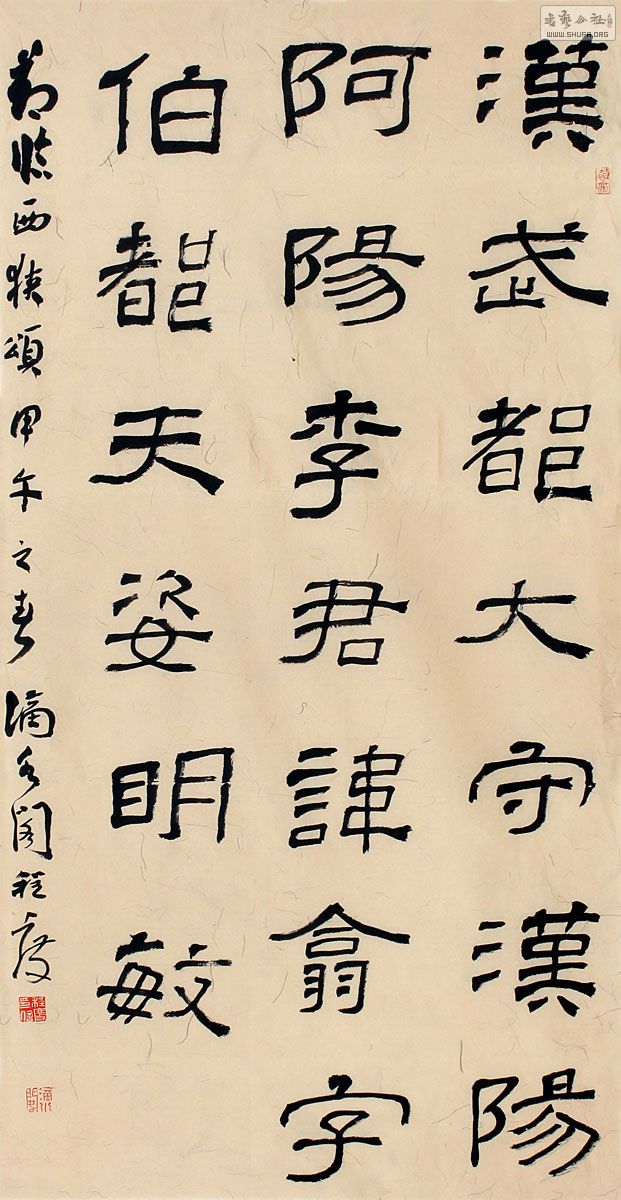 漢武都大守漢陽
阿陽李君諱翕字
伯都天姿明敏
節臨西狹頌甲午之春滴水閣程度
書藝公社
WWW.SHUFA.ORG